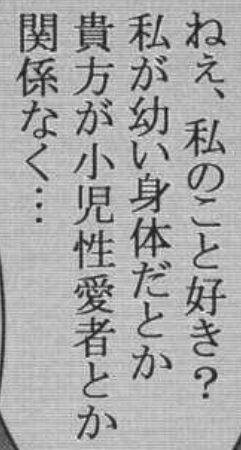 ねぇ、私のこと好き?
私が幼い身体だとか
貴方が小児性愛者とか
関係なく…